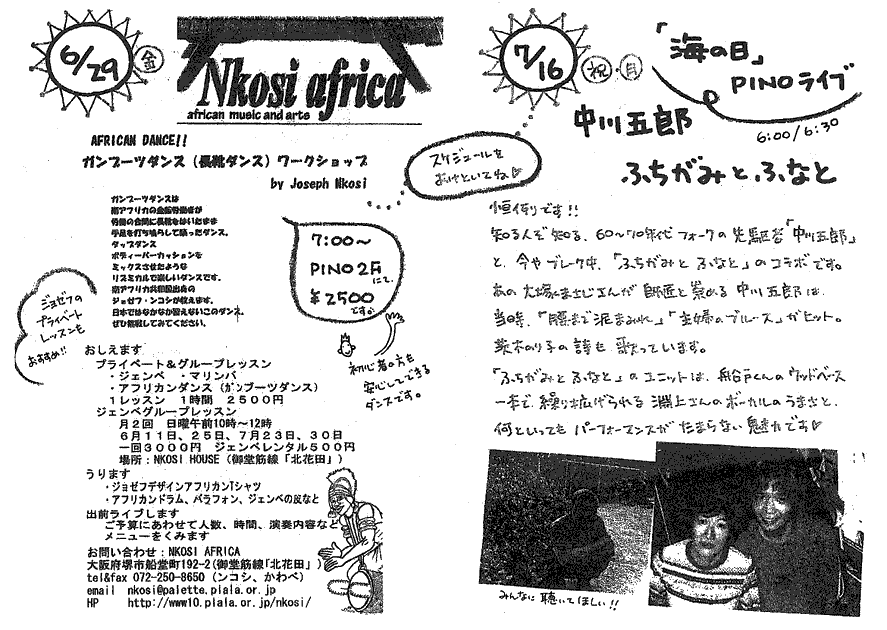 6/29 金
Nkosi africa
african music and arts
AFRICAN DANCE!!
ガンブーツダンス（長靴ダンス）ワークショップ
by Joseph Nkosi
スケジュールを
あけといてね♡
ガンブーツダンスは
南アフリカの金鉱労働者が
労働の合間に長靴をはいたまま
手足を打ち鳴らして踊ったダンス。
タップダンス
ボディーパーカッションを
ミックスさせたような
リズミカルで楽しいダンスです。
南アフリカ共和国出身の
ジョゼフ・ンコシが教えます。
日本ではなかなか習えないこのダンス。
ぜひ挑戦してみてください。
7:00〜
PINO 2Fにて。
¥2500
です。
ジョゼフの
プライベート
レッスンも
おすすめ!!
初心者の方も
安心してできる
ダンスです。
おしえます
プライベート&グループレッスン
・ジェンベ　・マリンバ
・アフリカンダンス（ガンブーツダンス）
１レッスン　１時間　２５００円
ジェンベグループレッスン
月２回　日曜午前10時〜12時
６月１１日、２５日、７月２３日、３０日
一回３０００円　ジェンベレンタル５００円
場所：NKOSI HOUSE（御堂筋線「北花田」）
うります
・ジョゼフデザインアフリカンTシャツ
・アフリカンドラム、バラフォン、ジェンベの皮など
出前ライブします
ご予算にあわせて人数、時間、演奏内容など
メニューをくみます
お問い合わせ：NKOSI AFRICA
大阪府堺市船堂町192-2(御堂筋線「北花田」)
tel&fax 072-250-8650 (ンコシ、かわべ)
email nkosi@palette.plala.or.jp
HP http://www10.plala.or.jp/nkosi/
7/16 祝・月
「海の日」
PINOライブ
6:00/6:30
中川五郎
ふちがみとふなと
恒例です!!
知る人ぞ知る、60〜70年代フォークの先駆者「中川五郎」
と、今やブレーク中、「ふちがみとふなと」のコラボです。
あの大塚まさじさんが師匠と崇める中川五郎は、
当時、「腰まで泥まみれ」「主婦のブルース」がヒット。
茨木のり子の詩も歌っています。
「ふちがみとふなと」のユニットは、船戸くんのウッドベース
一本で、繰り拡げられる渕上さんのボーカルのうまさと、
何といってもパーフォーマンスがたまらない魅力です♡
みんなに聴いてほしい!!